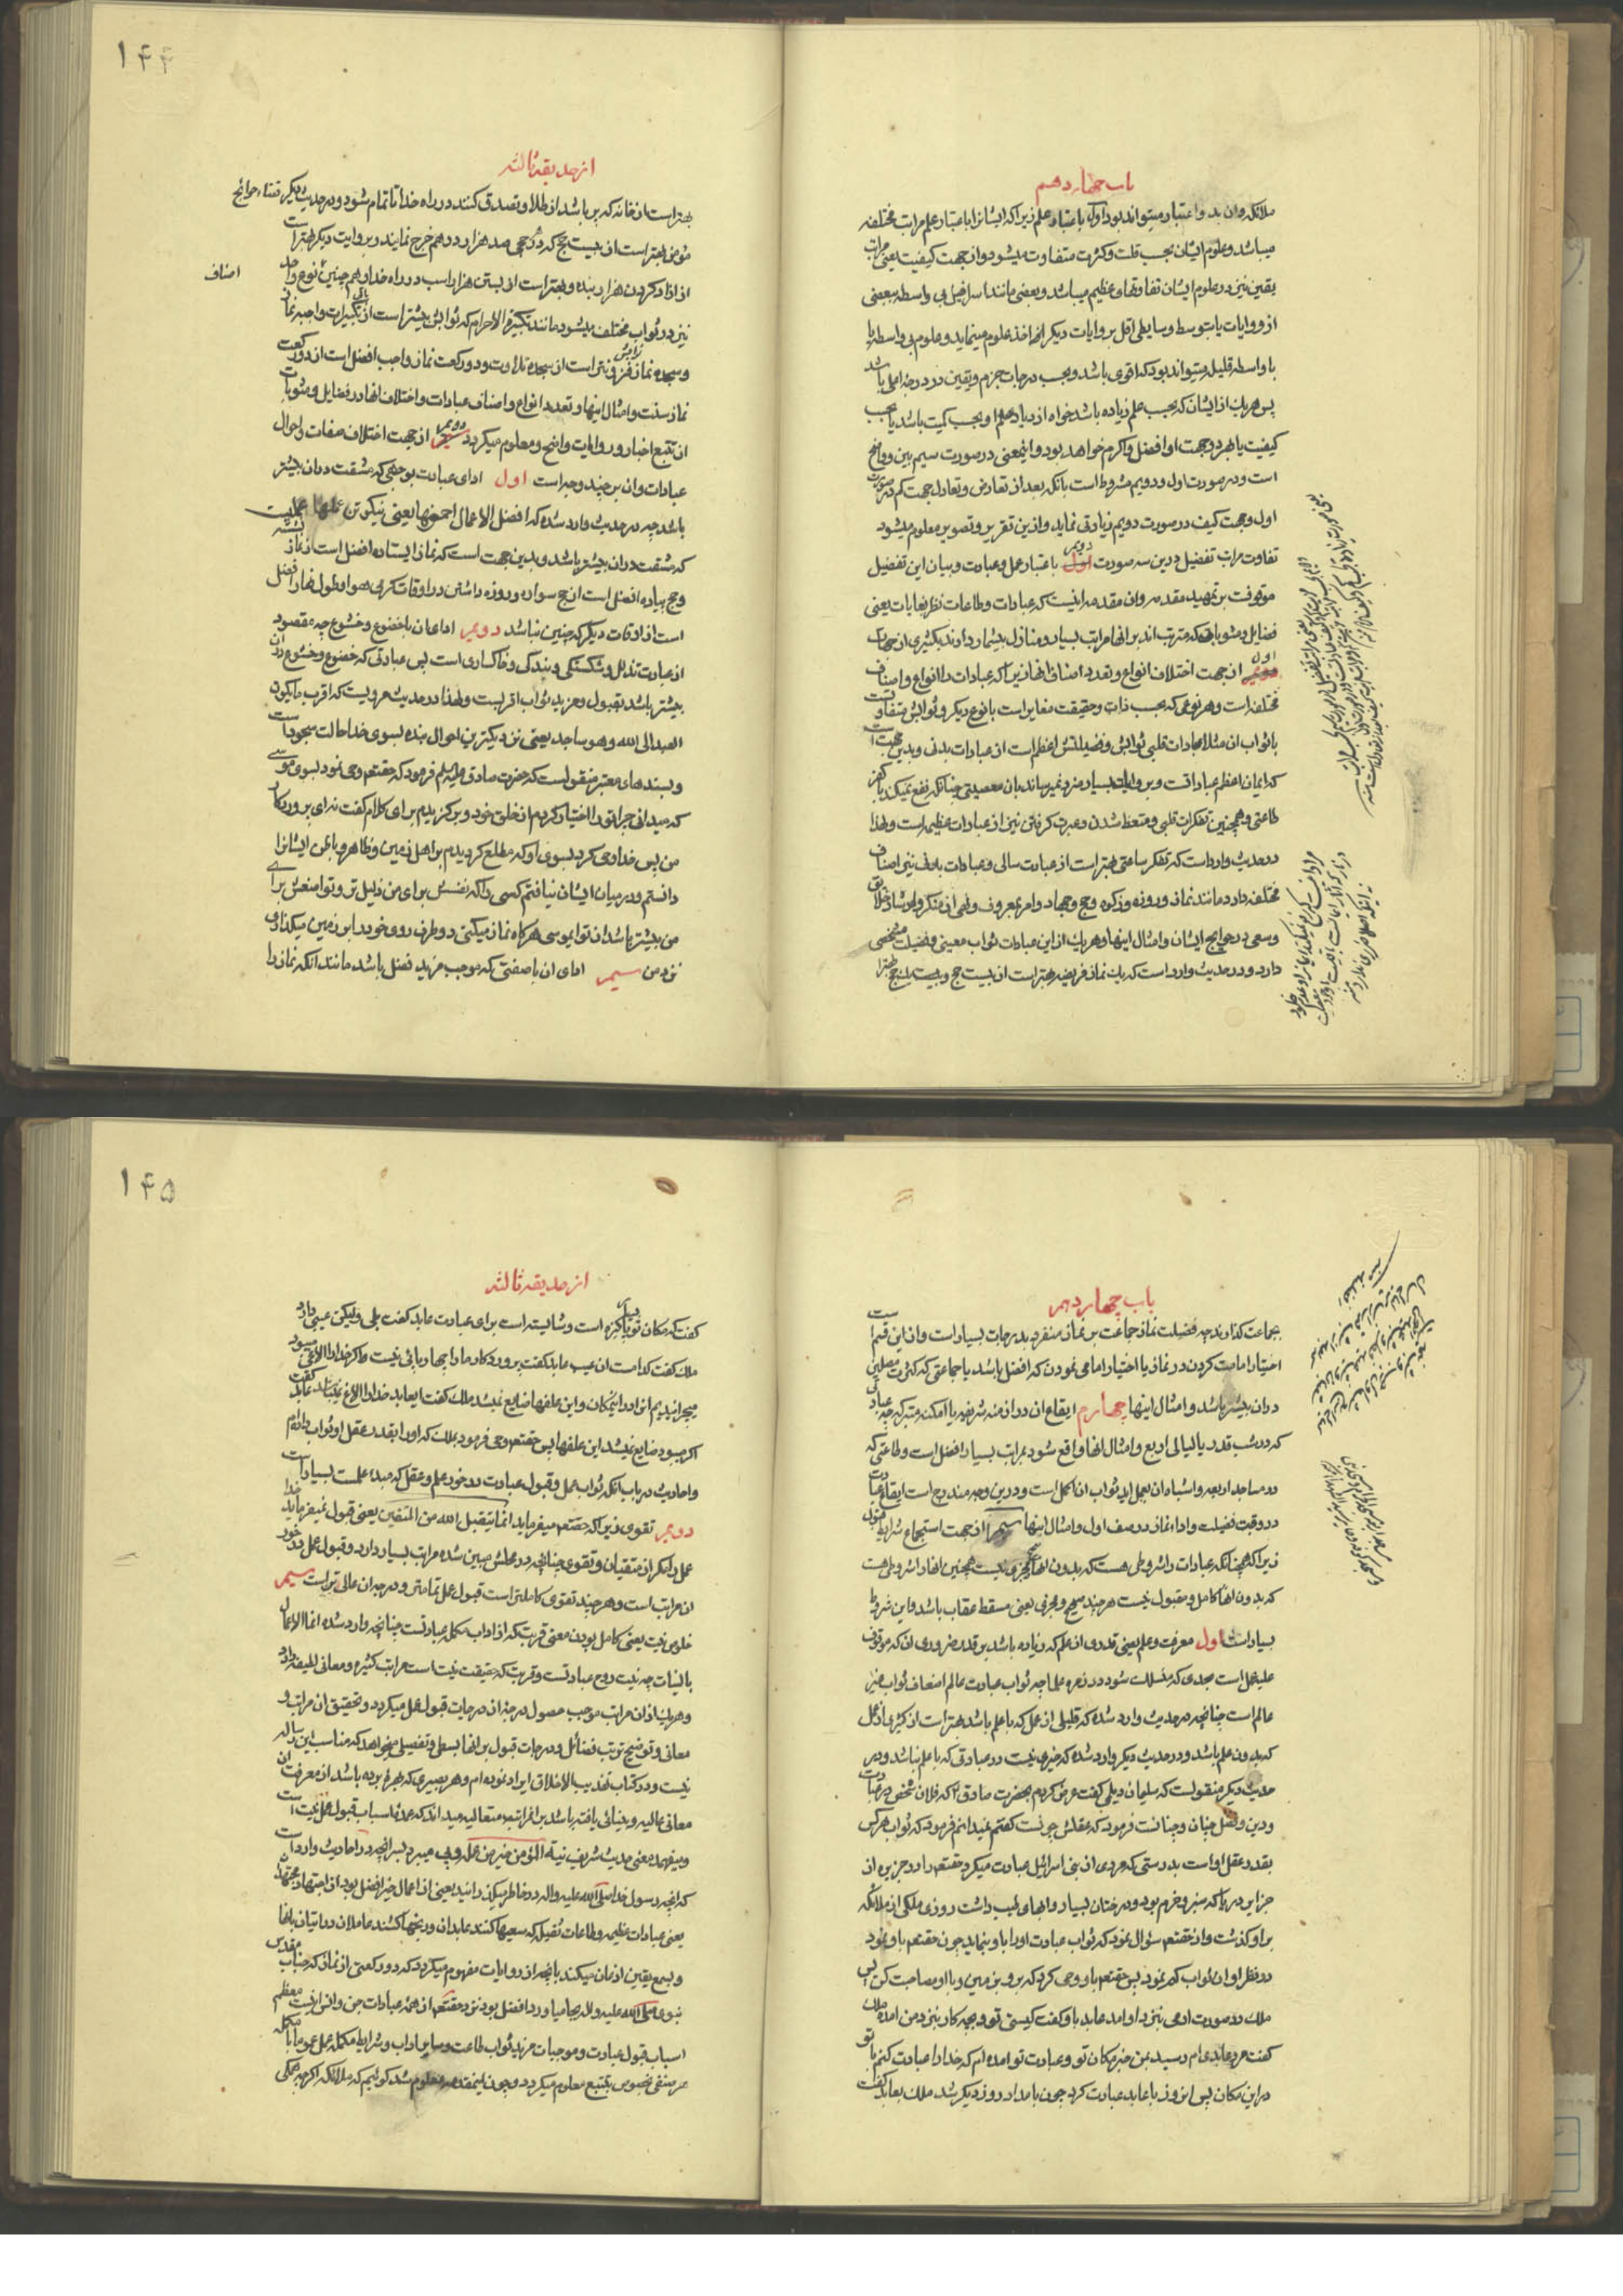 باب چهاردهم
ملائکه وان بدو اعتبار میتواند بود اول باعتبار علم زیرا که ایشانرا باعتبار علم مراتب مختلفه
میباشد و علوم ایشان بحسب قلت و کثرت متفاوت میشود و از جهت کیفیت یعنی مراتب
یقین نیز در علوم ایشان تفاوتهای عظیم میباشد و بعضی مانند اسرافیل بی واسطه ببعضی
از روایات یا بتوسط وسایطی اقل بروایات دیگر اخذ علوم مینماید و علوم بی واسطه یا
با واسطه قلیله میتواند بود که اقوی باشد و بحسب درجات جزم و یقین در درجه اعلی باشد
پس هریک از ایشان که بحسب علم زیاده باشد خواه ازدیاد علم او بحسب کمیت باشد یا بحسب
کیفیت یا بهر دو جهت او افضل و اکرم خواهد بود و اینمعنی در صورت سیم بین و واضح
است و در صورت اول و دویم مشروط است بانکه بعد از تعارض و تعادل جهت کم در صورت
اول و جهت کیف در صورت دویم زیادتی نماید و ازین تقریر و تصویر معلوم میشود
تفاوت مراتب تفضیل درین سه صورت دویم باعتبار عمل و عبادت و بیان این تفضیل
موقوفست بر تمهید مقدمه و ان مقدمه اینست که عبادات و طاعات نظر بغایات یعنی
فضایل و مثوباتی که مترتب اند بر انها مراتب بسیار و منازل بیشمار دارند بکثیری از جهات
اول از جهت اختلاف انواع و تعدد اصناف انها زیرا که عبادات را انواع و اصناف
مختلفه است و هر نوعی که بحسب ذات و حقیقت مغایر است با نوع دیگر و ثوابش متفاوتست
با ثواب ان مثلا عبادات قلبی ثوابش و فضیلتش اعظم است از عبادات بدنی و بدین جهت است
که ایمان اعظم عباداتست و بروایات بسیار ضرر نمیرساند بان معصیتی چنانکه نفع نمیکند با کفر
طاعتی و همچنین تفکرات قلبی و متعظ شدن و عبرت گرفتن نیز از عبادات عظیمه است و لهذا
در حدیث وارد است که تفکر ساعتی بهتر است از عبادت سالی و عبادات بدنی نیز اصناف
مختلفه دارد مانند نماز و روزه و زکوة و حج و جهاد و امر بمعروف و نهی از منکر و ارشاد خلایق
و سعی در حوایج ایشان و امثال اینها و هریک از این عبادات ثواب معینی و فضیلت مشخصی
دارد و در حدیث وارد است که یک نماز فریضه بهتر است از بیست حج و بیست حج بهتر
از حدیقه ثالثه
۱۴۴
بهتر است از خانه که پر باشد از طلا و تصدق کنند در راه خدا تا تمام شود و در حدیث دیگر قضاء حوایج
مؤمن بهتر است از بیست حج که در هر حجی صد هزار درهم خرج نمایند و بروایت دیگر بهتر است
از ازاد کردن هزار بنده و بهتر است از بستن هزار اسب در راه خدا و همچنین نوع واحد
اصناف
نیز در ثواب مختلف میشود مانند تکبیرة الاحرام که ثوابش بیشتر است از باقی تکبیرات واجبه نماز
و سجده نماز ثوابش فزونتر است از سجده تلاوت و دو رکعت نماز واجب افضل است از دو رکعت
نماز سنت و امثال اینها و تعدید انواع و اصناف عبادات و اختلاف انها در فضایل و مثوبات
از تتبع اخبار و روایات واضح و معلوم میگردد دویم از جهت اختلاف صفات و احوال
عبادات و ان بر چند وجه است اول ادای عبادت بوجهی که مشقت در ان بیشتر
باشد چه در حدیث وارد شده که افضل الاعمال احمزها یعنی نیکوترین عملها عملیست
که مشقت در ان بیشتر باشد و بدین جهت است که نماز ایستاده افضل است از نماز نشسته
و حج پیاده افضل است از حج سواره و روزه داشتن در اوقات گرمی هوا و طول نهار افضل
است از اوقات دیگر که چنین نباشد دویم ادای ان با خضوع و خشوع چه مقصود
از عبادت تذلل و شکستگی و بندگی و خاکساری است پس عبادتی که خضوع و خشوع در ان
بیشتر باشد بقبول و مزید ثواب اقربست و لهذا در حدیث مرویست که اقرب ما یکون
العبد الی الله و هو ساجد یعنی نزدیکترین احوال بنده بسوی خدا حالت سجود است
و بسندهای معتبر منقولست که حضرت صادق علیه السلم فرمود که حقتعالی وحی نمود بسوی موسی
که میدانی چرا تو را اختیار کردم از خلق خود و برگزیدم برای کلام گفت نه ای پروردگار
من پس خدا وحی کرد بسوی او که مطلع گردیدم بر اهل زمین و ظاهر و باطن ایشانرا
دانستم و در میان ایشان نیافتم کسی را که نفسش برای من ذلیل تر و تواضعش برای
من بیشتر باشد از تو ایموسی هرگاه نماز میکنی دو طرف روی خود را بر زمین میگذاری
نزد من سیم ادای ان با صفتی که موجب مزید فضل باشد مانند انکه نماز را
باب چهاردهم
بجماعت گذارند چه فضیلت نماز جماعت بر نماز منفرد بدرجات بسیار است و از این قسم است
اختیار امامت کردن در نماز یا اختیار امامی نمودن که افضل باشد یا جماعتی که کثرت مصلین
در ان بیشتر باشد و امثال اینها چهارم ایقاع ان در ازمنه شریفه یا امکنه متبرکه چه عبادتی
که در شب قدر یا لیالی اربع و امثال انها واقع شود بمراتب بسیار افضل است و طاعتی که
در مساجد اربعه و اشباه ان بعمل اید ثواب ان اکمل است و درین وجه مندرج است ایقاع عبادت
در وقت فضیلت و اداء نماز در صف اول و امثال اینها سیم از جهت استجماع شرایط قبول
زیرا که همچنانکه عبادات را شروطی هست که بدون انها مجزی نیست همچنین انها را شروطی هست
که بدون انها کامل و مقبول نیست هر چند صحیح و مجزی یعنی مسقط عقاب باشد و این شروط
بسیار است اول معرفت و علم یعنی قدری از علم که زیاده باشد بر قدر ضروری ان که موقوف
علیه عمل است بحدی که منسلک شود در زمره علما چه ثواب عبادت عالم اضعاف ثواب غیر
عالم است چنانچه در حدیث وارد شده که قلیلی از عمل که با علم باشد بهتر است از کثیری از عمل
که بدون علم باشد و در حدیث دیگر وارد شده که خیری نیست در عبادتی که با علم نباشد و در
حدیث دیگر منقولست که سلیمان دیلمی گفت عرض کردم بحضرت صادق که فلان شخص در عبادت
و دین و فضل چنان و چنانست فرمود که عقلش چونست گفتم نمیدانم فرمود که ثواب هر کس
بقدر عقل او است بدرستی که مردی از بنی اسرائیل عبادت میکرد حقتعالی را در جزیره از
جزایر دریا که سبز و خرم بود و درختان بسیار و ابهای طیب داشت روزی ملکی از ملائکه
بر او گذشت و از حقتعالی سؤال نمود که ثواب عبادت او را باو بنماید چون حقتعالی باو نمود
در نظر او ان ثواب کم نمود پس حقتعالی باو وحی کرد که برو بزمین و با او مصاحبت کن پس
ملک در صورت ادمی بنزد او امد عابد باو گفت کیستی تو و بچه کار بنزد من امده ملک
گفت مرد عابدی ام رسید بمن خبر مکان تو و عبادت تو امده ام که خدا را عبادت کنم با تو
در این مکان پس انروز با عابد عبادت کرد چون بامداد روز دیگر شد ملک بعابد گفت
از حدیقه ثالثه
۱۴۵
گفت که مکان تو بسیار پاکیزه است و شایسته است برای عبادت عابد گفت بلی ولیکن عیبی دارد
ملک گفت کدامست ان عیب عابد گفت پروردگار ما را چهارپائی نیست و اگر خدا را الاغی میبود
میچرانیدیم انرا در اینمکان و این علفها ضایع نمیشد ملک گفت ایعابد خدا را الاغ نمیباشد عابد گفت
اگر میبود ضایع نمیشد این علفها پس حقتعالی وحی فرمود بملک که او را بقدر عقل او ثواب دادم
و احادیث در باب انکه ثواب عمل و قبول عبادت در خور علم و عقل که مبدء علمست بسیار است
دویم تقوی زیرا که حقتعالی میفرماید انما یتقبل الله من المتقین یعنی قبول نمیفرماید خدا
عمل را مگر از متقیان و تقوی چنانچه در محلش مبین شده مراتب بسیار دارد و قبول عمل در خور
ان مراتب است و هر چند تقوی کاملتر است قبول عمل تمامتر و درجه ان عالی تر است سیم
خلوص نیت یعنی کامل بودن معنی قربت که از اداب مکمله عبادتست چنانچه وارد شده انما الاعمال
بالنیات چه نیت روح عبادتست و قربت که حقیقت نیتست مراتب کثیره و معانی لطیفه دارد
و هریک از ان مراتب موجب حصول درجه از درجات قبول عمل میگردد و تحقیق ان مراتب و
معانی و توضیح ترتب فضائل و درجات قبول بر انها بسطی و تفصیلی میخواهد که مناسب این رساله
نیست و در کتاب تهذیب الاخلاق ایراد نموده ام و هر بصیری که بهره برده باشد از معرفت ان
معانی عالیه و بینائی یافته باشد بر ان مراتب متعالیه میداند که عمده اسباب قبول عمل نیت است
و میفهمد معنی حدیث شریف نیة المؤمن خیر من عمله و پی میبرد بسر انچه در احادیث وارد است
که انچه رسول خدا صلی الله علیه و اله در خاطر میگذرانید یعنی از اعمال خیر افضل بود از اجتهاد مجتهدان
یعنی عبادات عظیمه و طاعات ثقیله که سعیها کنند عابدان و رنجها کشند عاملان در اتیان بانها
و بسمع یقین اذعان میکند بانچه از روایات مفهوم میگردد که دو رکعتی از نماز که جناب مقدس
نبوی صلی الله علیه و اله بجا میاورد افضل بود نزد حقتعالی از همه عبادات جن و انس اینست معظم
اسباب قبول عبادت و موجبات مزید ثواب طاعت و سایر اداب و شرایط مکمله عمل عموما یا
در صنفی بخصوص بتتبع معلوم میگردد و چون اینمقدمه معلوم شد گوئیم که ملائکه اگر چه مکمله